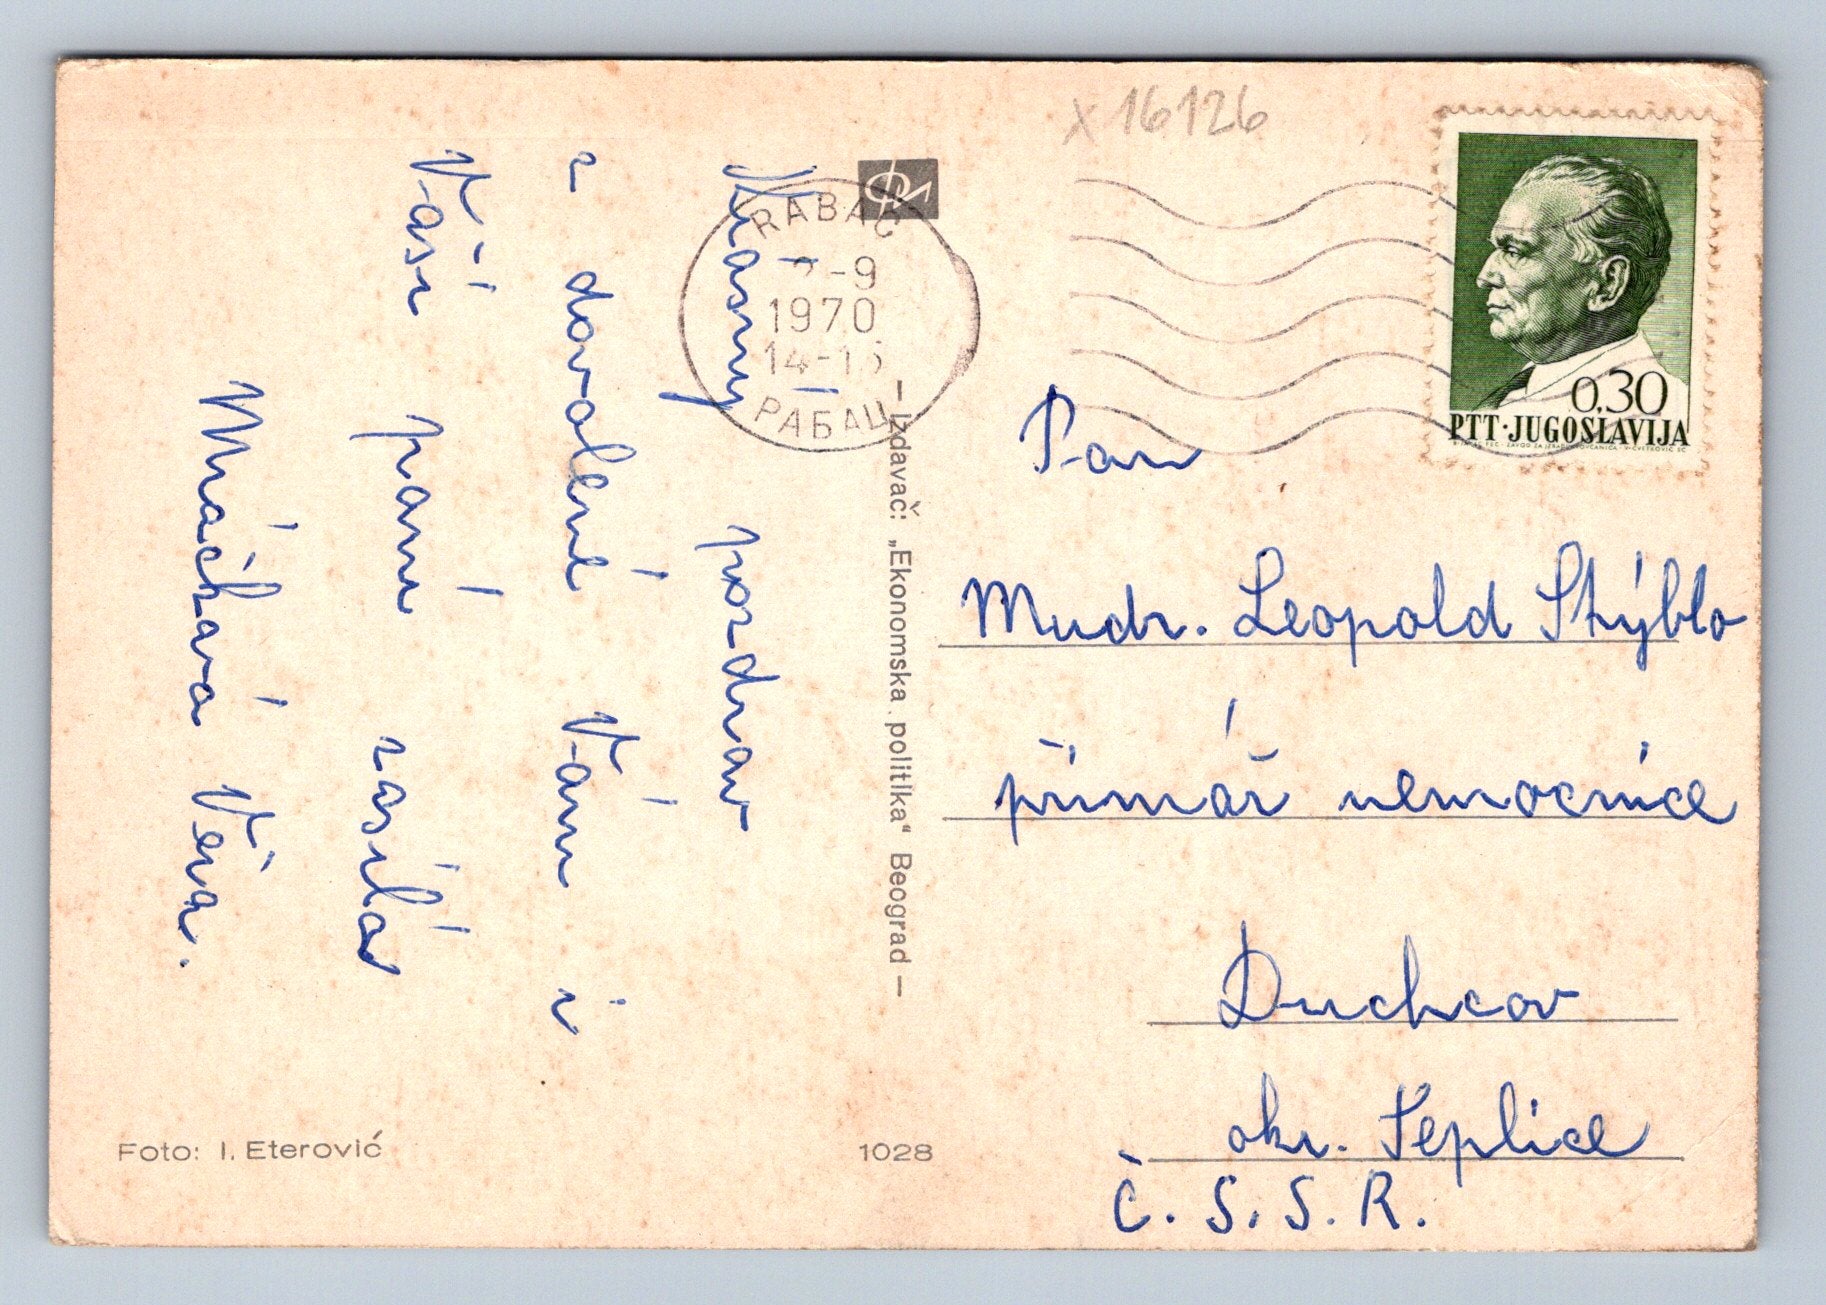 x 16126
Krásný pozdrav
z dovolené Vám i
Vaší paní zasílá
Macháva Věra.
RABAC
-9
1970
14-1
РАБАЦ
— Izdavač: „Ekonomska politika“ Beograd —
0,30
PTT·JUGOSLAVIJA
Pan
Mudr. Leopold Stýblo
primář nemocnice
Duchcov
okr. Teplice
Č. S. S. R.
Foto: I. Eterović
1028